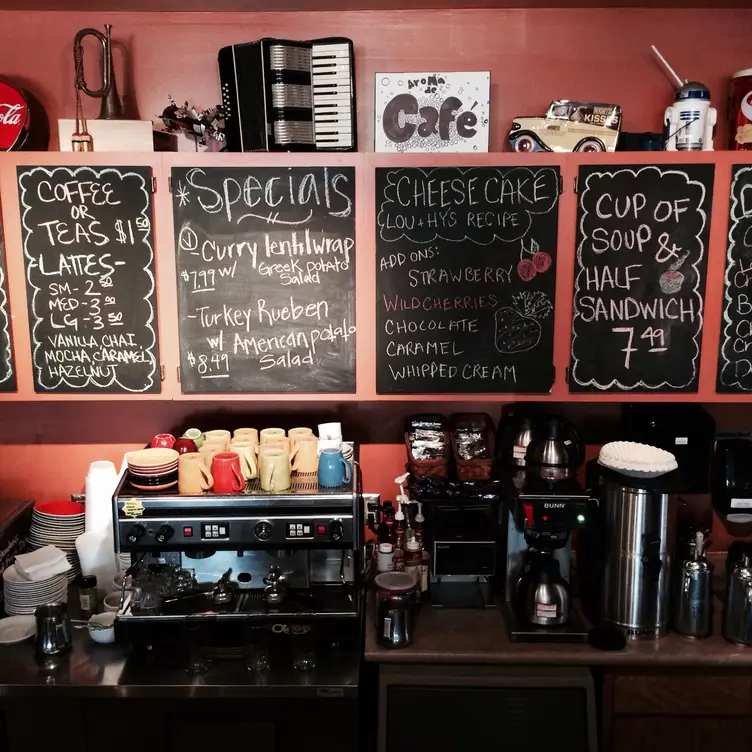 Cola
AROMA
de
Café
KISSES
COFFEE
OR
TEAS $1.50
-LATTES-
SM- 2.50
MED- 3.00
LG- 3.50
VANILLA, CHAI,
MOCHA, CARAMEL,
HAZELNUT
* Specials
① -Curry lentil wrap
$7.99 w/ Greek potato
Salad
-Turkey Rueben
w/ American potato
$8.49 Salad
CHEESE CAKE
LOU & HY'S RECIPE
ADD ONS:
STRAWBERRY
WILD CHERRIES
CHOCOLATE
CARAMEL
WHIPPED CREAM
CUP OF
SOUP &
HALF
SANDWICH
7.49
BUNN
BUNN